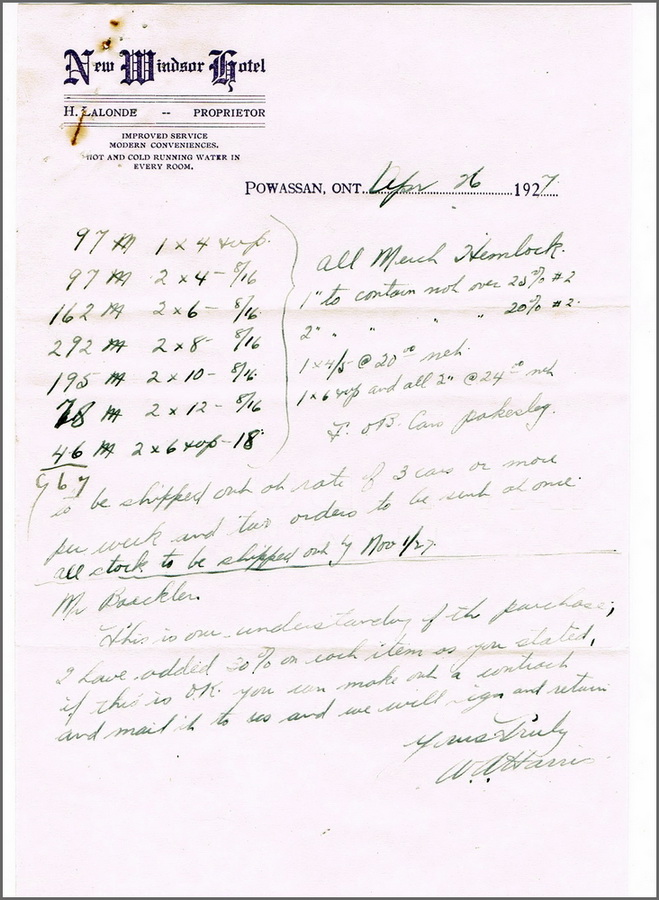 New Windsor Hotel
H. LALONDE -- PROPRIETOR
IMPROVED SERVICE
MODERN CONVENIENCES.
HOT AND COLD RUNNING WATER IN
EVERY ROOM.
POWASSAN, ONT. Apr 26 1927
97 M 1 x 4 + up.
97 M 2 x 4 - 8/16
162 M 2 x 6 - 8/16
292 M 2 x 8 - 8/16
195 M 2 x 10 - 8/16
78 M 2 x 12 - 8/16
46 M 2 x 6 + up - 18'
967
all Merch Hemlock.
1" to contain not over 25% #2
2" " " " " 20% #2.
1 x 4/5 @ 20.00 net.
1 x 6 + up and all 2" @ 24.00 net
F. OB. Cars Pakesley.
to be shipped out at rate of 3 cars or more
per week and two orders to be sent at once.
all stock to be shipped out by Nov 1/27.
Mr Boeckler.
This is our understanding of the purchase,
I have added 30% on each item as you stated,
if this is O.K. you can make out a contract
and mail it to us and we will sign and return
Yours Truly
W. A. Harris.